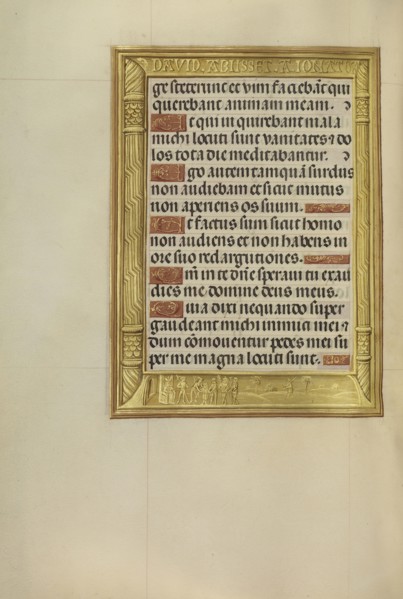 DAVID
ge steterunt et vim faciebāt qui
querebant animam meam.
Et qui inquirebant mala
michi locuti sunt vanitates ⁊ do
los tota die meditabantur.
Ego autem tamquā surdus
non audiebam et sicut mutus
non aperiens os suum.
Et factus sum sicut homo
non audiens et non habens in
ore suo redargutiones.
Qm̄ in te dn̄e speraui tu exau
dies me domine deus meus.
Quia dixi nequando super
gaudeant michi inimici mei ⁊
dum cōmouentur pedes mei su
per me magna locuti sunt.